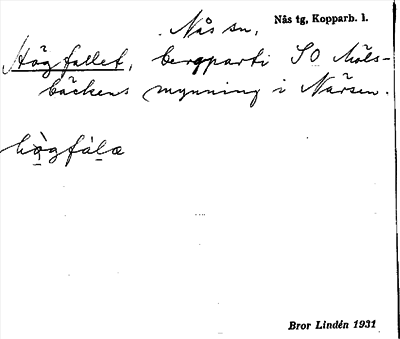 Nås sn, Nås tg, Kopparb. l.
Högfallet, bergparti SO Mäls-
bäckens mynning i Närsen.
hò̱gfàḻa
Bror Lindén 1931